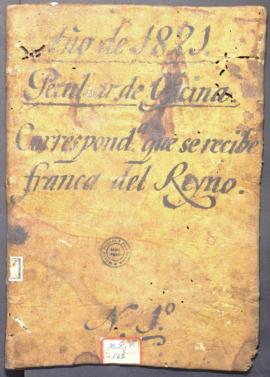 Año de 1821.
Peculiar de Oficina.
Correspond.ª que se recibe
franca del Reyno.
N. 1.º